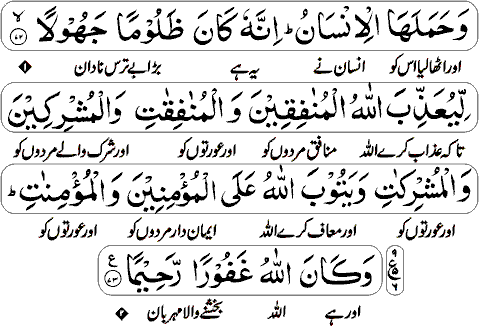 وَحَمَلَهَا الْاِنْسَانُ ؕ اِنَّهٗ كَانَ ظَلُوْمًا جَهُوْلًا ۙ﴿۷۲﴾
اور اٹھا لیا اس کو انسان نے یہ ہے بڑا بے ترس نادان ۱
لِّیُعَذِّبَ اللّٰهُ الْمُنٰفِقِیْنَ وَ الْمُنٰفِقٰتِ وَالْمُشْرِكِیْنَ
تاکہ عذاب کرے اللہ منافق مردوں کو اور عورتوں کو اور شرک والے مردوں کو
وَالْمُشْرِكٰتِ وَیَتُوْبَ اللّٰهُ عَلَی الْمُؤْمِنِیْنَ وَالْمُؤْمِنٰتِ ؕ
اور عورتوں کو اور معاف کرے اللہ ایمان دار مردوں کو اور عورتوں کو
وَكَانَ اللّٰهُ غَفُوْرًا رَّحِیْمًا ﴿۷۳﴾ ع
اور ہے اللہ بخشنے والا مہربان ۲